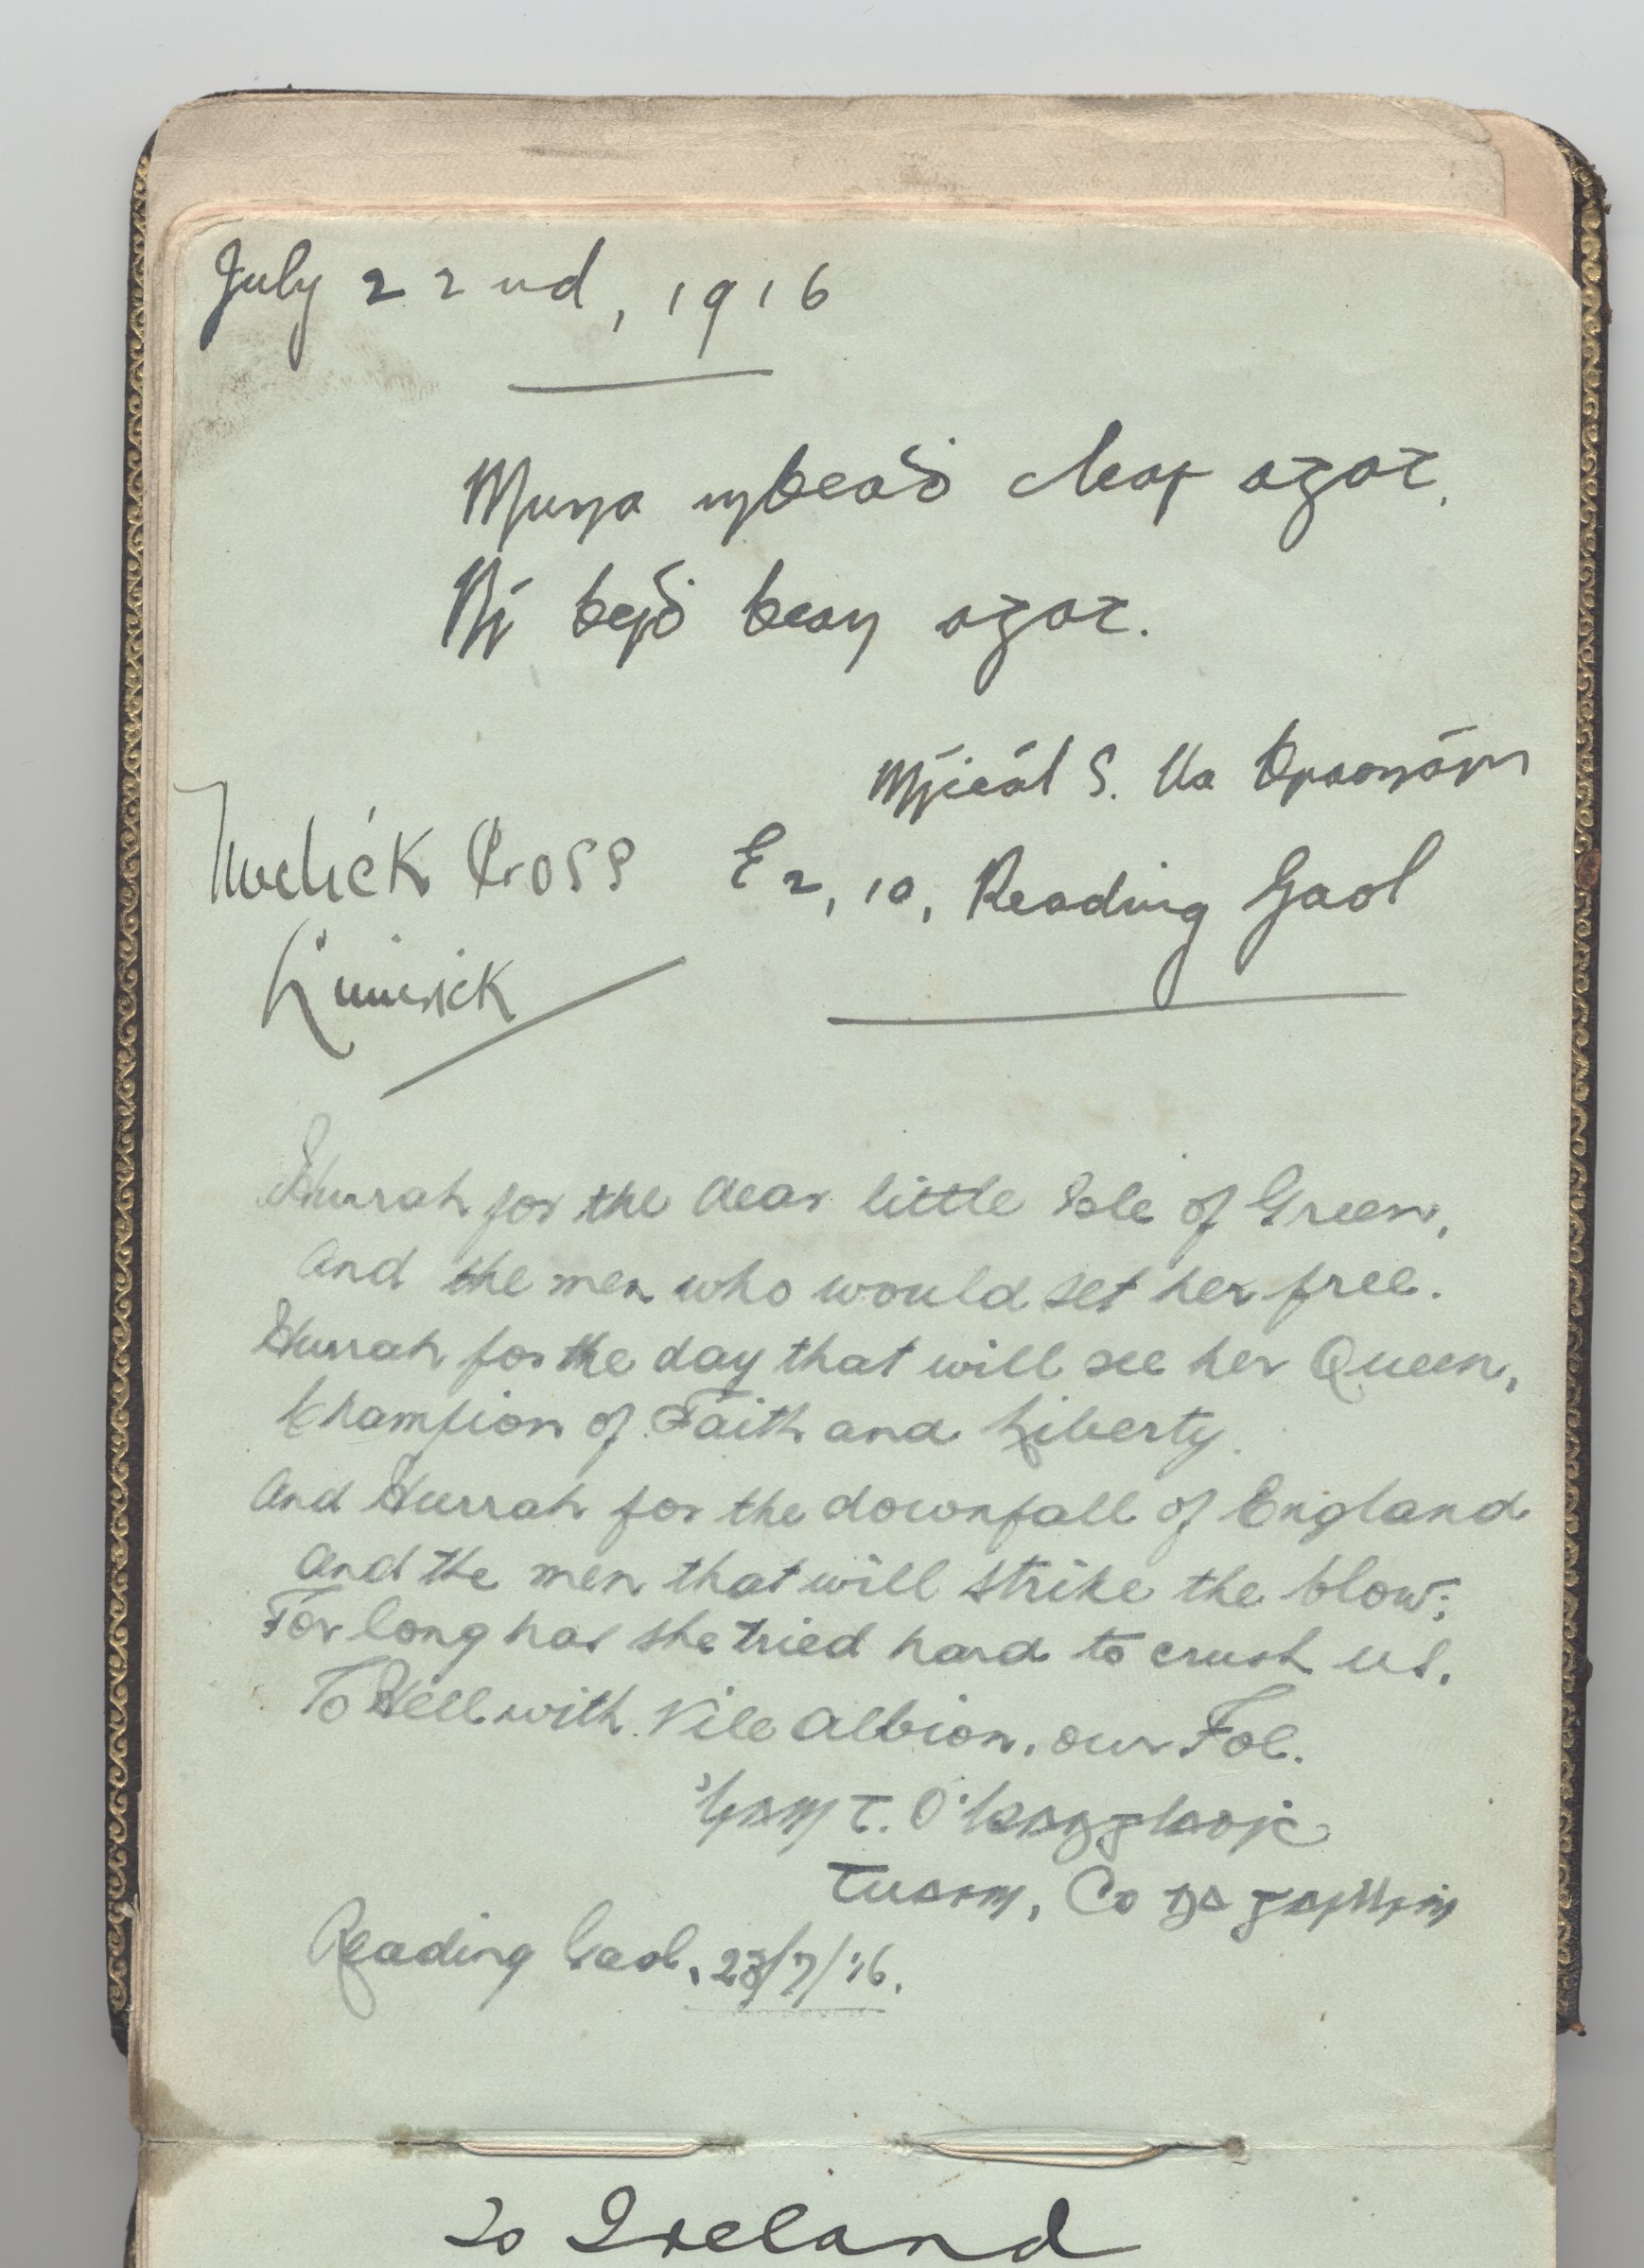 July 22nd, 1916
Muna mbeaḋ cleas agat,
Ní beiḋ bean agat.
Mícéal S. Ua Braonáin
Meelick Cross E2, 10, Reading Gaol
Limerick
Hurrah for the dear little Isle of Green,
And the men who would set her free.
Hurrah for the day that will see her Queen,
Champion of Faith and Liberty.
And Hurrah for the downfall of England
And the men that will strike the blow;
For long has she tried hard to crush us,
To Hell with Vile Albion, our Foe.
Liam T. O'Langlaoic
Tuaim, Co na Gaillim
Reading Gaol, 23/7/'16.
To Ireland